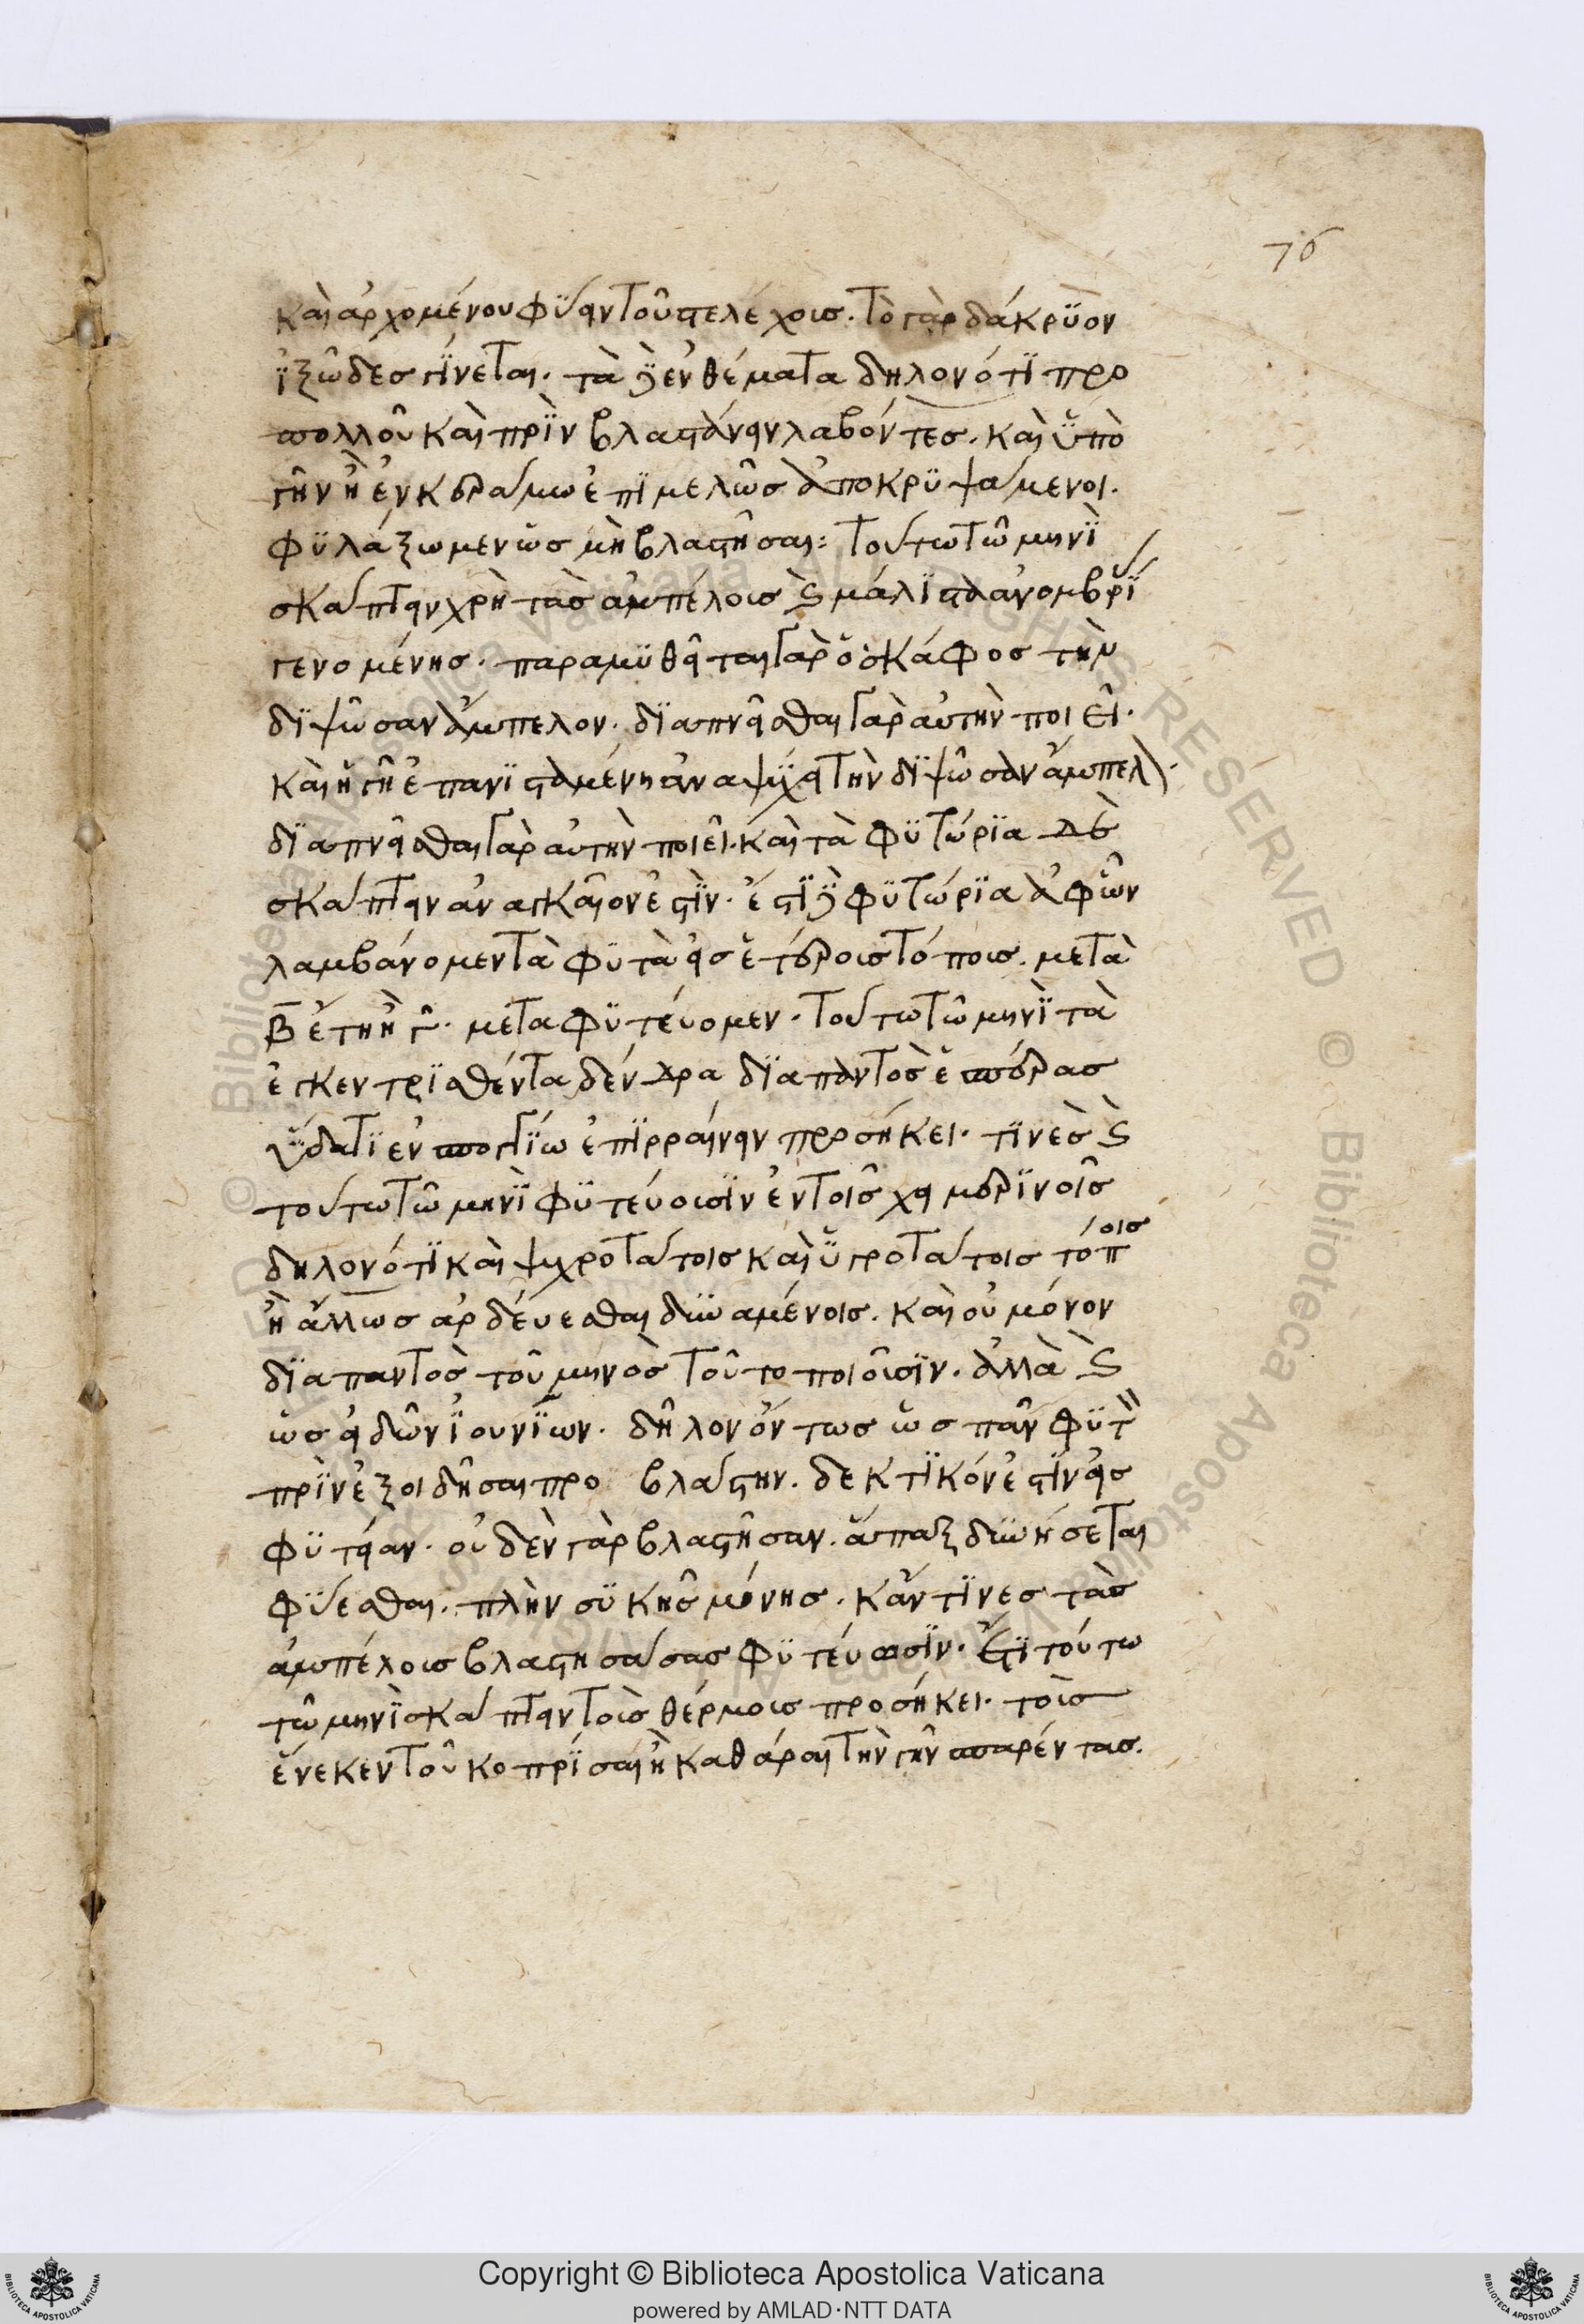 76
καὶ ἀρχομένου φύειν τοῦ στελέχους. τὸ γὰρ δάκρϋον
ἰξῶδες γίνεται. τὰ δὲ ἐνθέματα δηλονότι προ
πολλοῦ καὶ πρὶν βλαστάνειν λαβόντες. καὶ ὑπὸ
γῆν ἢ ἐν κεράμω ἐπιμελῶς ἀποκρυψάμενοι.
φυλάξωμεν ὡς μὴ βλαστῆσαι: τούτω τῶ μηνὶ
σκάπτειν χρὴ τὰς ἀμπέλους καὶ μάλιστα ἀνομβρί
γενομένης. παραμυθεῖται γὰρ ὁ σκάφος τὴν
διψῶσαν ἄμπελον. διαπνεῖσθαι γὰρ αὐτὴν ποιεῖ.
καὶ ἡ γῆ ἐπανισταμένη ἀναψύχει τὴν διψῶσαν ἄμπελ
διαπνεῖσθαι γὰρ αὐτὴν ποιεῖ. καὶ τὰ φυτώρια δὲ
σκάπτειν ἀναγκαῖον ἐστίν. ἔστι δὲ φυτώρια ἀφ' ὧν
λαμβάνομεν τὰ φυτὰ εἰς ἑτέρους τόπους. μετὰ
β ἔτη ἢ γ. μεταφυτεύομεν. τούτω τῶ μηνὶ τὰ
ἐγκεντρισθέντα δένδρα διαπαντὸς ἑσπέρας
ὕδατι ἐν σπογγίω ἐπιρραίνειν προσήκει. τινὲς καὶ
τούτω τῶ μηνὶ φυτεύουσιν ἐν τοῖς χειμερινοῖς
δηλονότι καὶ ψυχροτάτοις καὶ ὑγροτάτοις τόποις
ἢ ἄλλως ἀρδεύεσθαι δυναμένοις. καὶ οὐ μόνον
διαπαντὸς τοῦ μηνὸς τοῦτο ποιοῦσιν. ἀλλὰ καὶ
ὡς εἰδῶν ἰουνίων. δῆλον ὄντως ὡς πᾶν φυτὸν
πρὶν ἐξοιδῆσαι προ βλάστην. δεκτικόν ἐστιν εἰς
φυτείαν. οὐδὲν γὰρ βλαστῆσαν. ἅπαξ δυνήσεται
φύεσθαι. πλὴν συκῆς μόνης. κἄν τινες τὰς
ἀμπέλους βλαστησάσας φυτεύωσιν. ἔτι τούτω
τῶ μηνὶ σκάπτειν τοὺς θέρμους προσήκει. τοὺς
ἕνεκεν τοῦ κοπρίσαι ἢ καθάραι τὴν γῆν σπαρέντας.
Copyright © Biblioteca Apostolica Vaticana
powered by AMLAD·NTT DATA